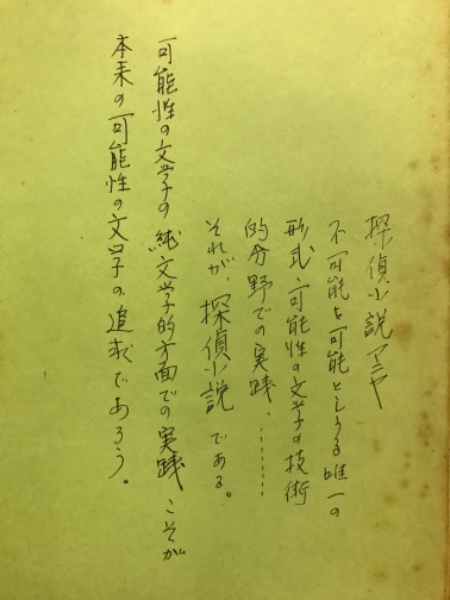 探偵小説マニヤ
不可能を可能としうる唯一の
形式、可能性の文学の技術
的分野での実践、………
それが、探偵小説である。
可能性の文学の純文学的方面での実践こそが
本来の可能性の文学の追求であろう。